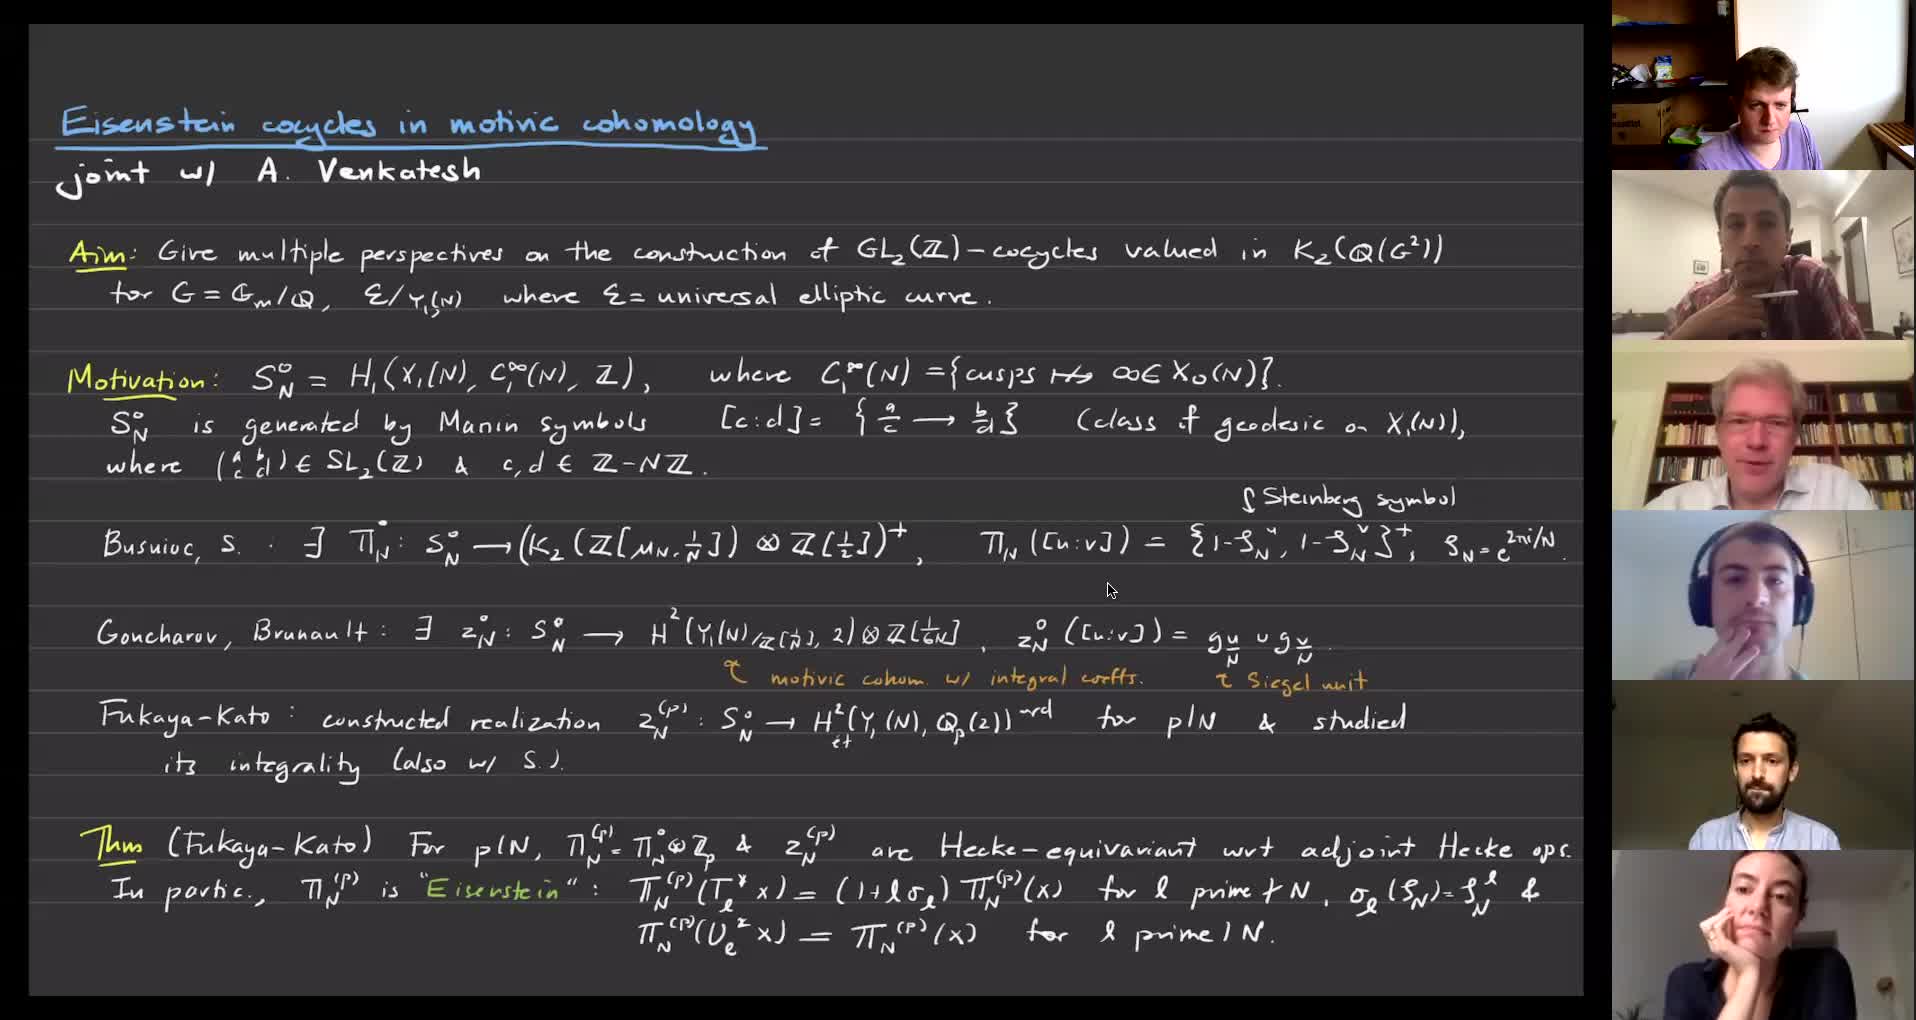 Eisenstein cocycles in motivic cohomology
joint w/ A. Venkatesh
Aim: Give multiple perspectives on the construction of GL₂(ℤ)-cocycles valued in K₂(ℚ(G²))
for G = 𝔾ₘ/ℚ, ℰ/Y₁(N) where ℰ = universal elliptic curve.
Motivation: S_N^o = H₁(X₁(N), C₁^∞(N), ℤ), where C₁^∞(N) = {cusps ↦̸ ∞ ∈ X₀(N)}.
S_N^o is generated by Manin symbols [c:d] = {a/c → b/d} (class of geodesic on X₁(N)),
where (a b; c d) ∈ SL₂(ℤ) & c,d ∈ ℤ-Nℤ.
Steinberg symbol
Busuioc, S. : ∃ Π_N^o : S_N^o → (K₂(ℤ[μ_N, 1/N]) ⊗ ℤ[1/2])^+, Π_N([u:v]) = {1-ζ_N^u, 1-ζ_N^v}^+, ζ_N = e^{2πi/N}.
Goncharov, Brunault : ∃ z_N^o : S_N^o → H²(Y₁(N)/ℤ[1/N], 2) ⊗ ℤ[1/6N], z_N^o([u:v]) = g_{u/N} ∪ g_{v/N}.
motivic cohom. w/ integral coeffs. Siegel unit
Fukaya-Kato : constructed realization z_N^{(p)} : S_N^o → H²_ét(Y₁(N), ℚ_p(2))^ord for p|N & studied
its integrality (also w/ S.).
Thm (Fukaya-Kato) For p|N, Π_N^{(p)} = Π_N^o ⊗ ℤ_p & z_N^{(p)} are Hecke-equivariant wrt adjoint Hecke ops.
In partic., Π_N^{(p)} is "Eisenstein" : Π_N^{(p)}(T_ℓ^* x) = (1+ℓσ_ℓ) Π_N^{(p)}(x) for ℓ prime ∤ N, σ_ℓ(ζ_N) = ζ_N^ℓ &
Π_N^{(p)}(U_ℓ^* x) = Π_N^{(p)}(x) for ℓ prime | N.